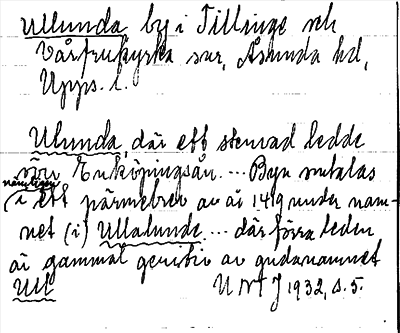 Ullunda by i Tillinge och
Vårfrukyrka snr, Åsunda hd,
Upps. l.
Ulunda, där ett stenvad ledde
över Enköpingsån. ... Byn omtalas
nämligen
(i ett pärmebrev av år 1419 under nam-
net (i) Ullalunde ... där förra leden
är gammal genitiv av gudanamnet
Ull UNTJ 1932, s. 5.